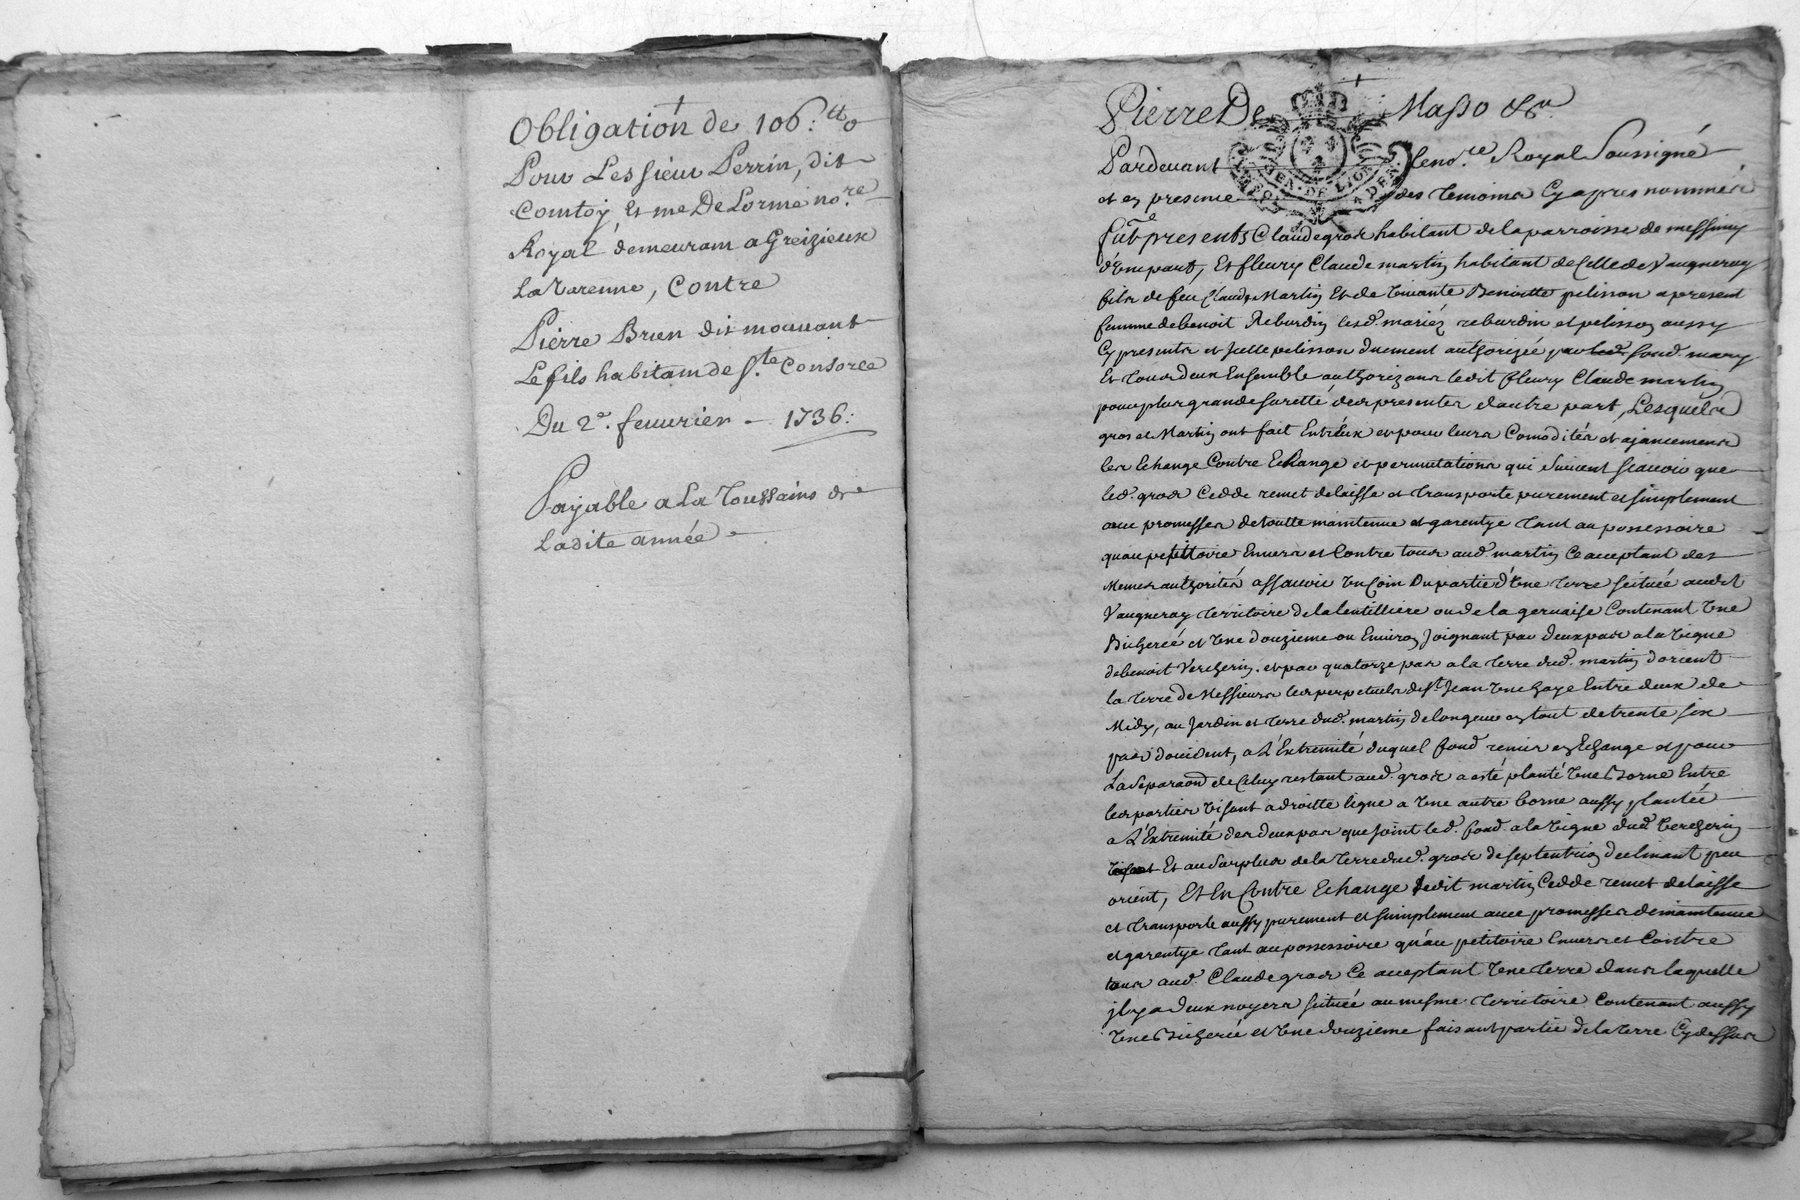 Obligation de 106.tt
Pour Les sieur Perrin, dit
Comtoy, Et me DeLorme no.re
Royal demeuram a Greizieux
La Varenne, Contre
Pierre Brun dit mouuant
Le fils habitam de S.te Consorce
Du 2e. feuurier - 1736:
Payable a La Toussains de
Ladite année -
Pierre De Masso &a.
GEN. DE LION
Pardevant Le no.re Royal Soussigné
et en presence des temoins Cy apres nommés
furẽt presents Claude gros habitant de la parroisse de messimy
d'Une part, Et fleury Claude martin habitant de Celle de Vaugneray
fils de feu Claude Martin Et de Vivante Benoitte pelisson a present
femme de benoit Reburdin lesd. mariéz reburdin et pelisson aussy
Cy presents et jcelle pelisson duement authorizée par sond. mary
Et tous deux Ensemble authorizans ledit fleury Claude martin
pour plus grande suretté des presentes d'autre part, Lesquels
gros et Martin ont fait Entr'Eux et pour leurs Comodités et ajancements
les Echange Contre Echange et permutations qui suivent scauoir que
led. gros Cedde remet delaisse et transporte purement et simplement
auec promesses de toutte maintenue et garentye tant au possessoire
qu'au petittoire Enuers et Contre tous aud. martin Ce acceptant des
Memes authorités assauoir Un Coin Ou partie d'Une terre scituée audit
Vaugneray territoire de la lentilliere ou de la gervaise Contenant Une
Bicherée et Une douzieme ou Enuiron Joignant par deux pas a la Vigne
de benoit Vercherin. et par quatorze pas a la terre dud. martin d'orient
la terre de Messieurs les perpetuels de St. Jean Une haye Entre deux de
Midy, au Jardin et terre dud. martin de longeur en tout de trente six
pas d'occident, a L'Extremité duquel fond remis en Echange et pour
La separaõn de Celuy restant aud. gros a esté planté Une Borne Entre
les parties Visant a droitte ligne a Une autre borne aussy plantée
a L'Extremité des deux pas que joint led. fond a la Vigne dud. Vercherin
Et au surplus de la terre dud. gros de septentrion declinant peu
orient, Et En Contre Echange ledit martin Cedde remet delaisse
et transporte aussy purement et simplement auec promesses de maintenue
et garentye tant au possessoire qu'au petitoire Enuers et Contre
tous aud. Claude gros Ce acceptant Une terre dans laquelle
jl y a deux noyers scituée au mesme territoire Contenant aussy
Une Bicherée et Une douzieme faisant partie de la terre Cy dessus